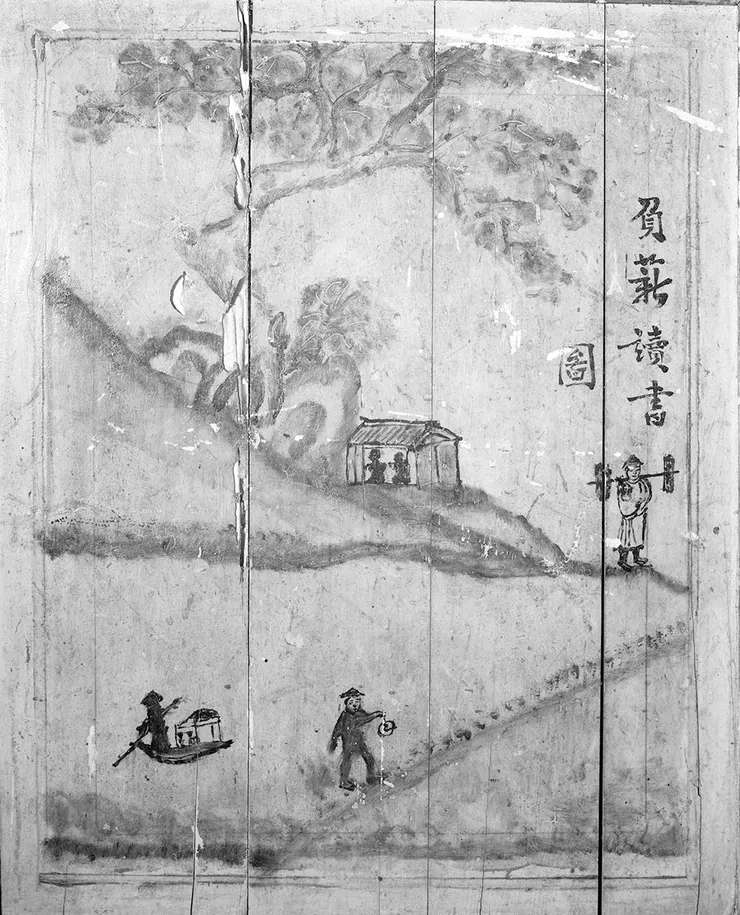 負薪讀書
啚